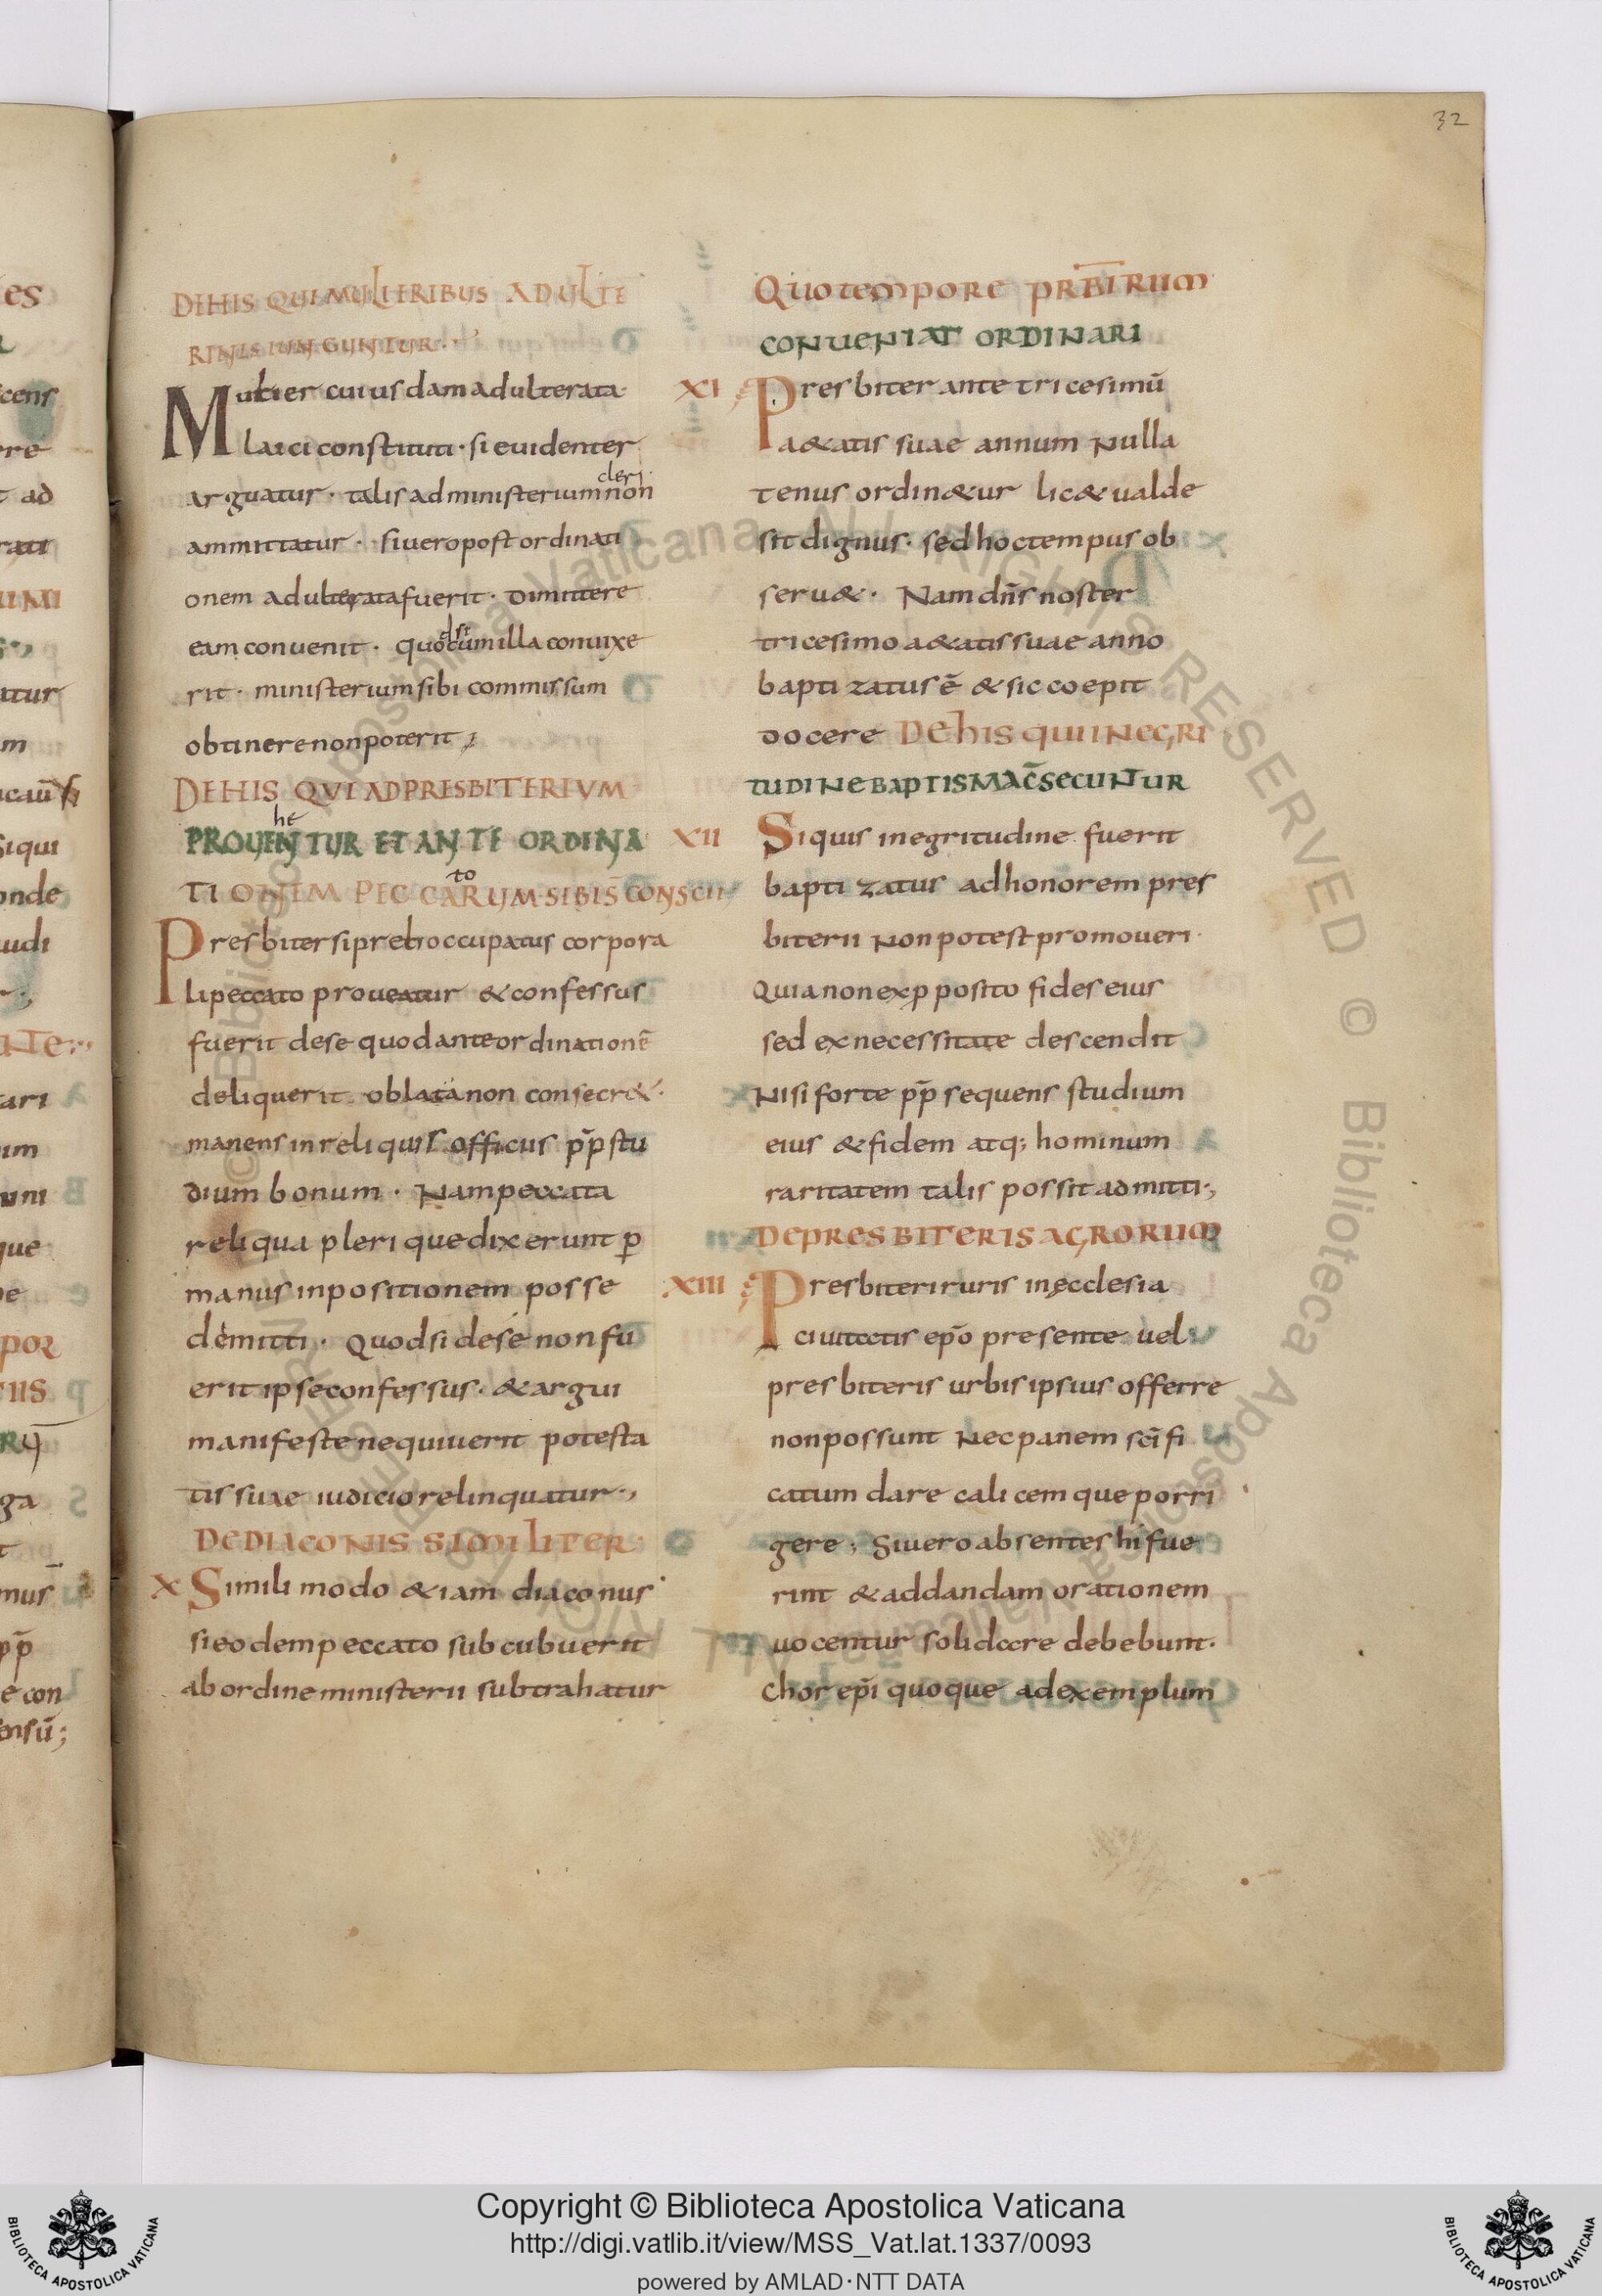 32
DE HIS QUI MULIERIBUS ADULTE
RINIS IUNGUNTUR·.·
Mulier cuiusdam adulterata·
laici constituti· si euidenter
arguatur· talis ad ministerium non
cleri·
ammittatur· si uero post ordinati
onem adulterata fuerit· dimittere
eam conuenit· quod si cum illa conuixe
rit· ministerium sibi commissum
obtinere non poterit;
DE HIS QVI AD PRESBITERIVM
PROUEHENTUR ET ANTE ORDINA
TIONEM PECCATORUM SIBI S̄ CONSCII
Presbiter si prelioccupatus corpora
li peccato proueatur & confessus
fuerit de se quod ante ordinationē
deliquerit· oblata non consecr&·
manens in reliquis officiis pp̄ stu
dium bonum· Nam peccata
reliqua plerique dixerunt p̱
manus inpositionem posse
demitti· Quod si de se non fu
erit ipse confessus· & argui
manifeste nequiuerit potesta
tis suae iudicio relinquatur·,
DE DIACONIS SIMILITER
X Simili modo &iam diaconus·
si eodem peccato subcubuerit
ab ordine ministerii subtrahatur
QUO TEMPORE PRBĪTRUM
CONUENIAT ORDINARI
XI Presbiter ante tricesimū
a&atis suae annum nulla
tenus ordin&ur lic& ualde
sit dignus· sed hoc tempus ob
seru&· Nam dn̄s noster
tricesimo a&atis suae anno
baptizatus ē & sic coepit
docere DE HIS QUI IN EGRI
TUDINE BAPTISMA C̄SECUNTUR
XII Si quis in egritudine fuerit
baptizatus ad honorem pres
biterii non potest promoueri·
Quia non ex p̱posito fides eius
sed ex necessitate descendit
Nisi forte pp̄ sequens studium
eius & fidem atq; hominum
raritatem talis possit admitti·,
DE PRESBITERIS AGRORUM
XIII Presbiteri ruris in ęcclesia
ciuitatis ep̄o presente uel
presbiteris urbis ipsius offerre
non possunt Nec panem scī fi
catum dare calicemque porri
gere; Si uero absentes hi fue
rint & ad dandam orationem
uocentur soli dare debebunt·
Chorep̄i quoque ad exemplum
es
cens
ere
t ad
rati
UIMI
atur
m
siqui
onde
udi
ari
um
uni
que
be
por
TIIS
ga
t
mus
pp̄
e con
ensū;
Copyright © Biblioteca Apostolica Vaticana
http://digi.vatlib.it/view/MSS_Vat.lat.1337/0093
powered by AMLAD·NTT DATA
BIBLIOTECA APOSTOLICA VATICANA
BIBLIOTECA APOSTOLICA VATICANA
© Biblioteca Apostolica Vaticana ALL RIGHTS RESERVED © Biblioteca Apostolica Vaticana ALL RIGHTS RESERVED